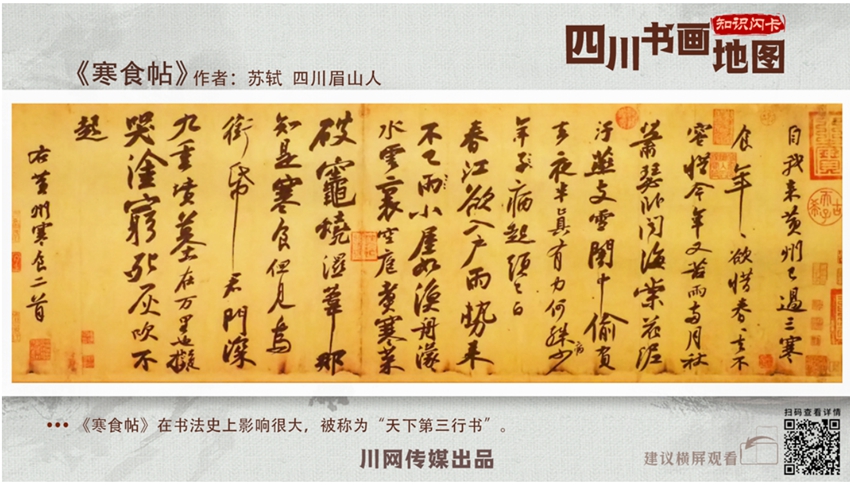 四川书画
知识闪卡
地图
《寒食帖》作者：苏轼 四川眉山人
自我来黄州已過三寒
食年〻欲惜春〻去不
容惜今年又苦雨兩月秋
蕭瑟卧聞海棠花泥
汙燕支雪闇中偷負
去夜半真有力何殊少
病
年子病起頭已白
春江欲入户雨勢来
不已雨小屋如漁舟濛〻
水雲裏空庖煮寒菜
破竈燒濕葦那
知是寒食但見烏
銜帋君門深
九重墳墓在万里也擬
哭塗窮死灰吹不
起
右黄州寒食二首
《寒食帖》在书法史上影响很大，被称为“天下第三行书”。
川网传媒出品
扫码查看详情
建议横屏观看